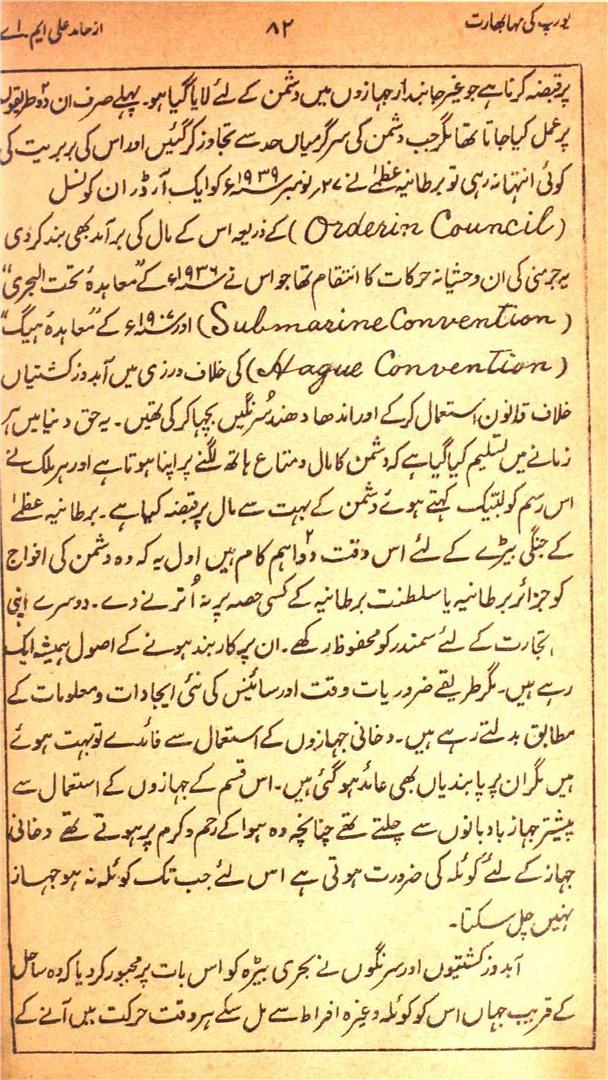 یورپ کی مہابھارت
۸۲
از حامد علی ایم۔ اے
پر قبضہ کرتا ہے جو غیر جانبدار جہازوں میں دشمن کے لئے لایا گیا ہو۔ پہلے صرف ان دو۲ طریقوں
پر عمل کیا جاتا تھا مگر جب دشمن کی سرگرمیاں حد سے تجاوز کر گئیں اور اس کی بربریت کی
کوئی انتہا نہ رہی تو برطانیہ عظمےٰ نے ۲۷؍ نومبر ۱۹۳۹ء کو ایک آرڈر ان کونسل
(Orderin Council) کے ذریعہ اس کے مال کی برآمد بھی بند کر دی
یہ جرمنی کی ان وحشیانہ حرکات کا انتقام تھا جو اس نے ۱۹۳۶ء کے "معاہدۂ تحت البحری"
(Submarine Convention) اور ۱۹۰۷ء کے "معاہدۂ ہیگ"
(Hague Convention) کی خلاف ورزی میں آبدوز کشتیاں
خلاف قانون استعمال کر کے اور اندھا دھند سُرنگیں بچھا کر کی تھیں۔ یہ حق دنیا میں ہر
زمانے میں تسلیم کیا گیا ہے کہ دشمن کا مال و متاع ہاتھ لگنے پر اپنا ہوتا ہے اور ہر ملک نے
اس رسم کو لبیک کہتے ہوئے دشمن کے بہت سے مال پر قبضہ کیا ہے۔ برطانیہ عظمےٰ
کے جنگی بیڑے کے لئے اس وقت دو۲ اہم کام ہیں اول یہ کہ وہ دشمن کی افواج
کو جزائر برطانیہ یا سلطنت برطانیہ کے کسی حصہ پر نہ اُترنے دے۔ دوسرے اپنی
تجارت کے لئے سمندر کو محفوظ رکھے۔ ان پر کاربند ہونے کے اصول ہمیشہ ایک
رہے ہیں۔ مگر طریقے ضروریات وقت اور سائینس کی نئی ایجادات و معلومات کے
مطابق بدلتے رہے ہیں۔ دخانی جہازوں کے استعمال سے فائدے تو بہت ہوئے
ہیں مگر ان پر پابندیاں بھی عائد ہو گئی ہیں۔ اس قسم کے جہازوں کے استعمال سے
پیشتر جہاز بادبانوں سے چلتے تھے چنانچہ وہ ہوا کے رحم و کرم پر ہوتے تھے دخانی
جہاز کے لئے کوئلہ کی ضرورت ہوتی ہے اس لئے جب تک کوئلہ نہ ہو جہاز
نہیں چل سکتا۔
آبدوز کشتیوں اور سرنگوں نے بحری بیڑہ کو اس بات پر مجبور کر دیا کہ وہ ساحل
کے قریب جہاں اس کو کوئلہ وغیرہ افراط سے مل سکے ہر وقت حرکت میں آنے کے